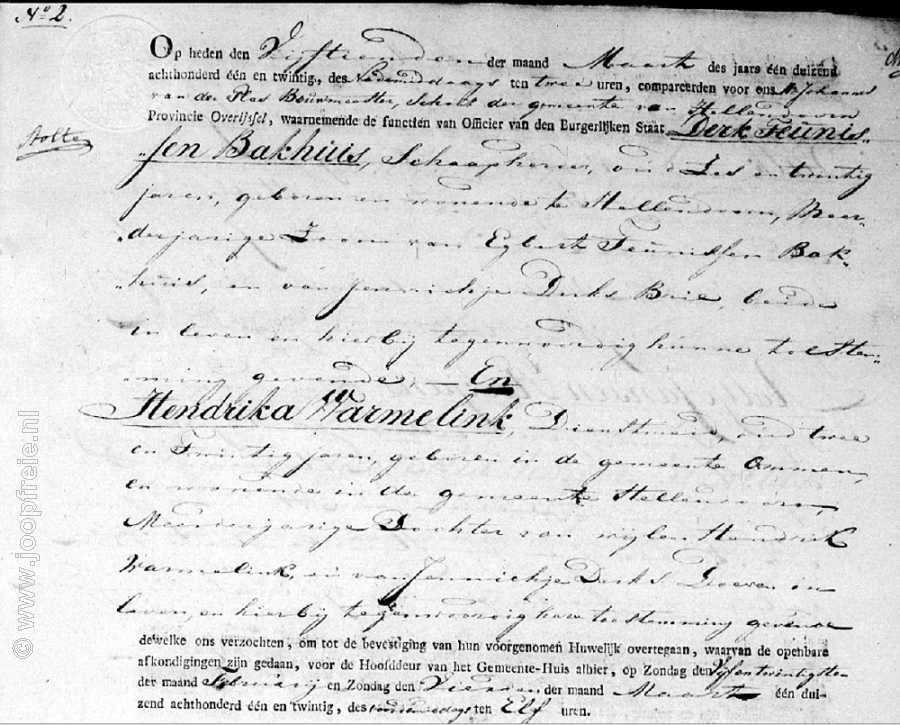 No 2.
Op heden den Vijftienden der maand Maart des jaars één duizend
achthonderd één en twintig, des Nademiddaags ten twee uren, compareerden voor ons Mr Johannes
van der Plas Bouwmeester, Schout der gemeente van Hellendoorn
Provincie Overijssel, waarnemende de functien van Officier van den Burgerlijken Staat Derk Teunis-
Stolte
sen Bakhuis, Schaapherder, oud Zes en twintig
jaren, geboren en wonende te Hellendoorn, Meer-
derjarige Zoon van Egbert Teunissen Bak-
huis, en van Jennichje Derks Brie, beide
in leven en hierbij tegenwoordig hunne toestem-
ming gevende — En
Hendrika Warmelink, Dienstmeid, oud twee
en Twintig jaren, geboren in de gemeente Ommen,
en wonende in de gemeente Hellendoorn
Meerderjarige Dochter van wijlen Hendrik
Warmelink, en van Jennichje Derks in
leven, en hierbij tegenwoordig hare toestemming gevende
dewelke ons verzochten, om tot de bevestiging van hun voorgenomen Huwelijk overtegaan, waarvan de openbare
afkondigingen zijn gedaan, voor de Hoofddeur van het Gemeente-Huis alhier, op Zondag den Vijfentwintigsten
der maand Februarij en Zondag den Vierden der maand Maart één dui-
zend achthonderd één en twintig, des voormiddags ten Elf uren.
© www.joopfreie.nl